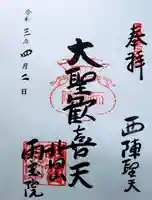 奉拝
西陣聖天
大聖歓喜天
雨宝院
令和三年四月二日